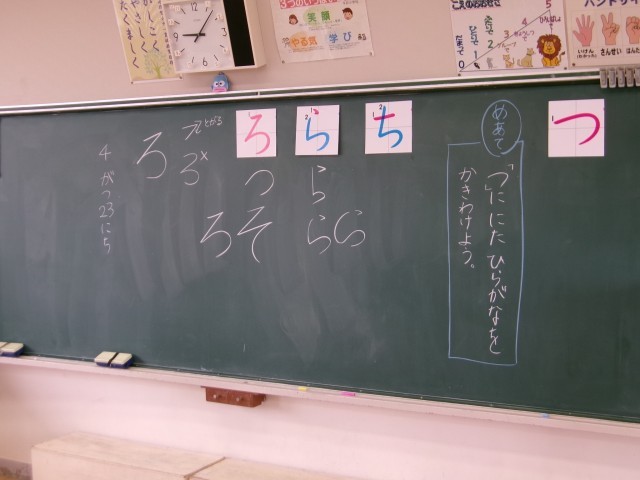 3つのいっぱい
笑顔
やる気
学び
こえのおおきさ
ハンドサイン
いけん
さんせい
つ
めあて
「つ」ににたひらがなをと
かきわけよう。
ち
ら
ろ
とがる
ろ
ろ
つ
ら
ろそ
らら
4がつ23にち